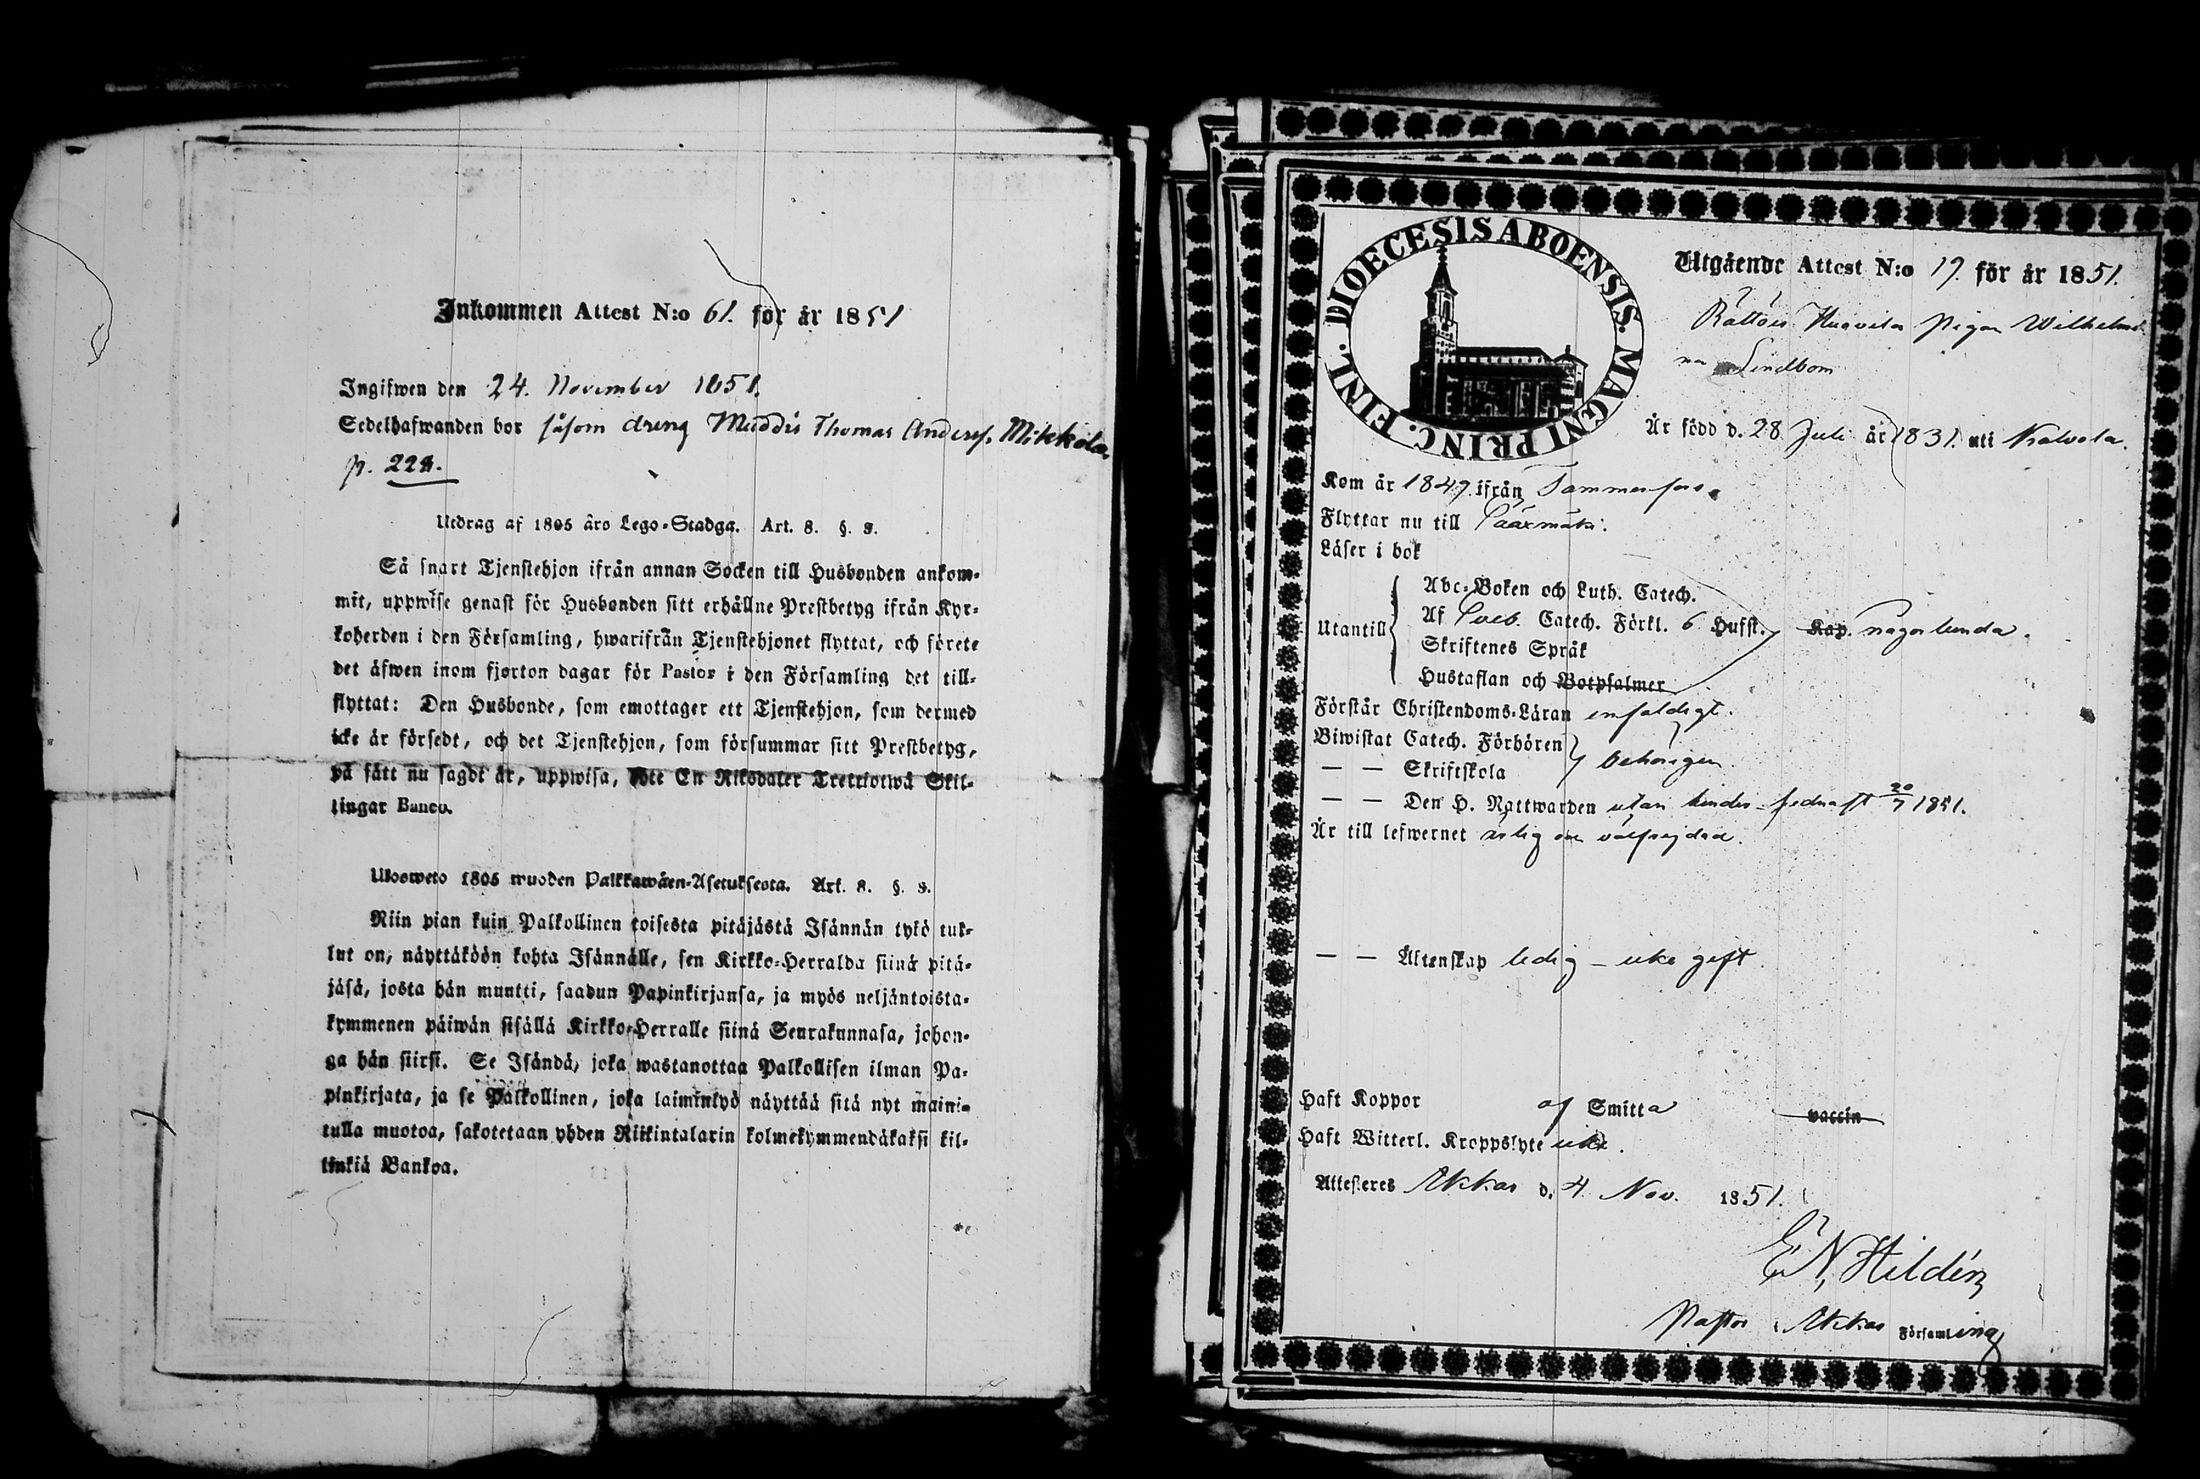 Inkommen Attest N:o 61. för år 1851
Ingifwen den 24. November 1851.
Sedelhafwanden bor såsom dreng Thomas Anderss. Mikkola
p. 228.
Utdrag af 1805 års Lego-Stadga. Art. 8. §. 3.
Så snart Tjenstehjon ifrån annan Socken till Husbonden ankom-
mit, uppwise genast för Husbonden sitt erhållne Prestbetyg ifrån Kyr-
koherden i den Församling, hwarifrån Tjenstehjonet flyttat, och förete
det äfwen inom fjorton dagar för Pastor i den Församling det till-
flyttat: Den Husbonde, som emottager ett Tjenstehjon, som dermed
icke är försedt, och det Tjenstehjon, som försummar sitt Prestbetyg,
på sätt nu sagdt är, uppwisa, böte En Riksdaler Trettiotwå Skil-
lingar Banco.
Ulosweto 1805 wuoden Palkkawäen-Asetuksesta. Art. 8. §. 3.
Niin pian kuin Palkollinen toisesta pitäjästä Isännän tykö tul-
lut on, näyttäköön kohta Isännälle, sen Kirkko-Herralda siinä pitä-
jäsä, josta hän muutti, saadun Papinkirjansa, ja myös neljäntoista-
kymmenen päiwän sisällä Kirkko-Herralle siinä Seurakunnasa, johon-
ga hän siirsi. Se Isändä, joka wastanottaa Palkollisen ilman Pa-
pinkirjata, ja se Palkollinen, joka laiminlyö näyttää sitä nyt maini-
tulla muotoa, sakotetaan yhden Riikintalarin kolmekymmendäkaksi kil-
linkiä Bankoa.
DIOECESIS ABOENSIS. MAGNI PRINC. FINL.
Utgående Attest N:o 19. för år 1851.
Rättöis Huovila pigan Wilhelmi-
na Lindbom
Är född d. 28 Juli år 1831. uti Kalvola.
Kom år 1849. ifrån Tammerfors.
Flyttar nu till Sääxmäki.
Läser i bok
Utantill
Abc-Boken och Luth. Catech.
Af Sveb. Catech. Förkl. 6 Hufst. Kap. någorlunda.
Skriftenes Språk
Hustaflan och Botpsalmer
Förstår Christendoms-Läran enfaldigt.
Biwistat Catech. Förhören
— — Skriftskola behörigen
— — Den H. Nattwarden utan hinder sednast 20/7 1851.
Är till lefwernet ärlig och välfrejdad.
— — Äktenskap ledig – icke gift.
Haft Koppor af Smitta vaccin
Haft Witterl. Kroppslyte icke.
Attesteres Akkas d. 4 Nov. 1851.
E N Hildén
Pastor i Akkas Församling